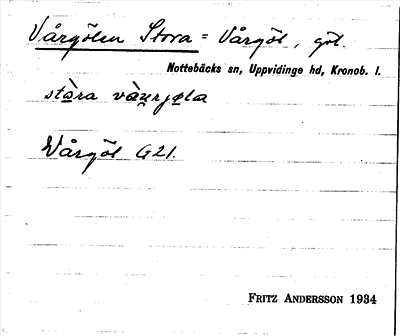 Vårgölen Stora = Vårgöl, göl.
Nottebäcks sn, Uppvidinge hd, Kronob. l.
stàra vàu̯rjøla
Wårgöl G21.
FRITZ ANDERSSON 1934